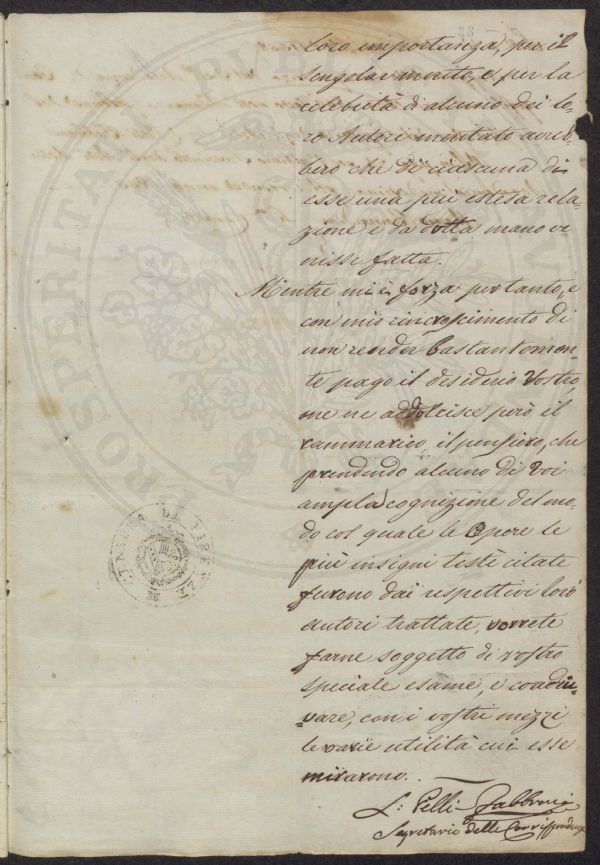 loro importanza, per il
singolar merito, e per la
celebrità di alcuno dei lo-
ro Autori meritato avreb-
bero che di ciascuna di
esse una più estesa rela-
zione e da dotta mano ve-
nisse fatta.
Mentre mi è forza pertanto, e
con mio rincrescimento di
non render bastantemen-
te pago il desiderio Vostro
me ne addolcisce però il
rammarico, il pensiero, che
prendendo alcuno di Voi
ampla cognizione del mo-
do col quale le Opere le
più insigni testè citate
furono dai respettivi loro
autori trattate, vorrete
farne soggetto di vostro
speciale esame, e coadiu-
vare, con i vostri mezzi
le varie utilità cui esse
mirarono.
L: Pelli Fabbroni
Segretario delle Corrispondenze
PROSPERITATI PUBLICAE